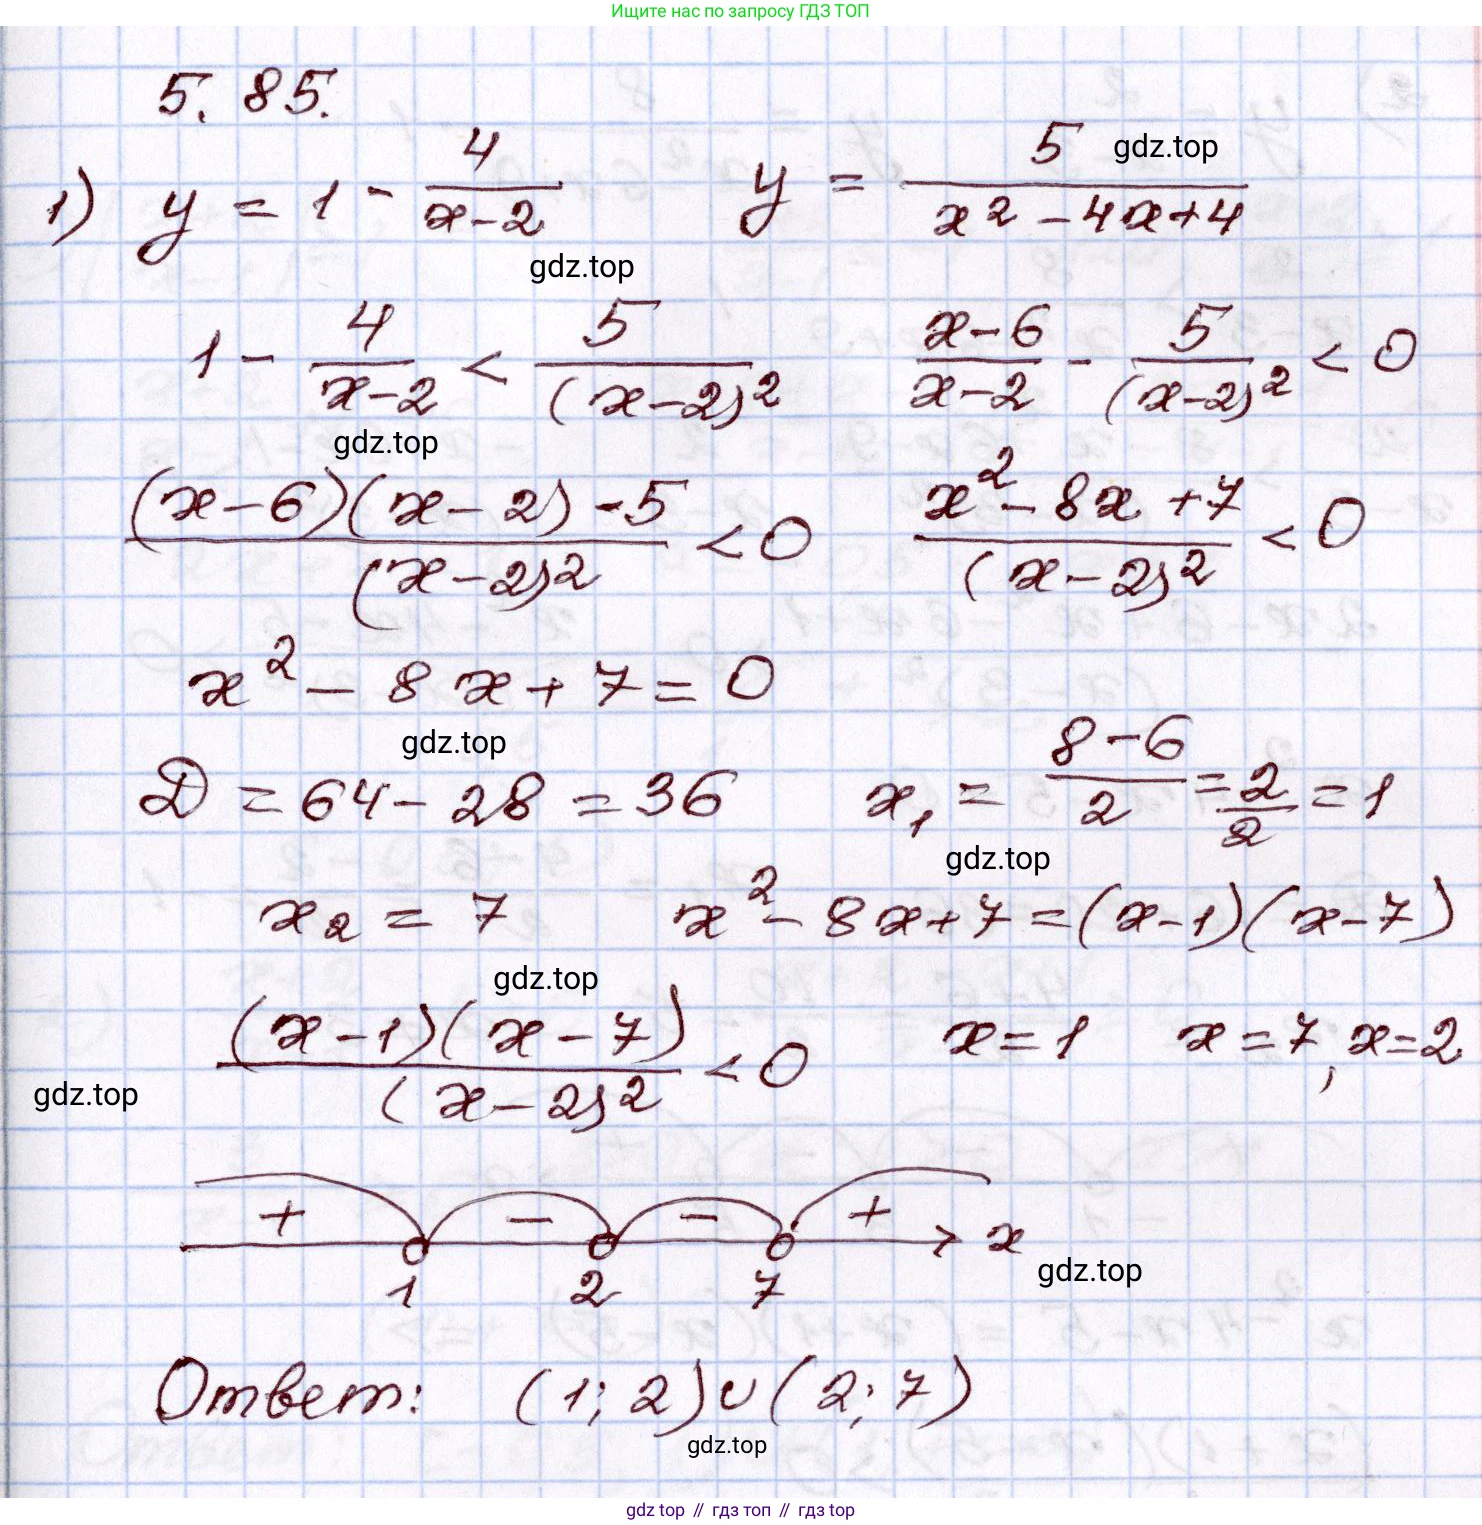 Ищите нас по запросу ГДЗ ТОП
5.85.
1) y = 1 - 4/(x-2)   y = 5/(x² - 4x + 4)
gdz.top
gdz.top
1 - 4/(x-2) < 5/(x-2)²   (x-6)/(x-2) - 5/(x-2)² < 0
gdz.top
((x-6)(x-2) - 5)/(x-2)² < 0   (x² - 8x + 7)/(x-2)² < 0
x² - 8x + 7 = 0
gdz.top
D = 64 - 28 = 36   x₁ = (8-6)/2 = 2/2 = 1
gdz.top
x₂ = 7   x² - 8x + 7 = (x-1)(x-7)
gdz.top
((x-1)(x-7))/(x-2)² < 0   x = 1   x = 7, x = 2
gdz.top
+ - - + x
1 2 7
gdz.top
Ответ: (1; 2) ∪ (2; 7)
gdz.top
gdz top // гдз топ // гдз top